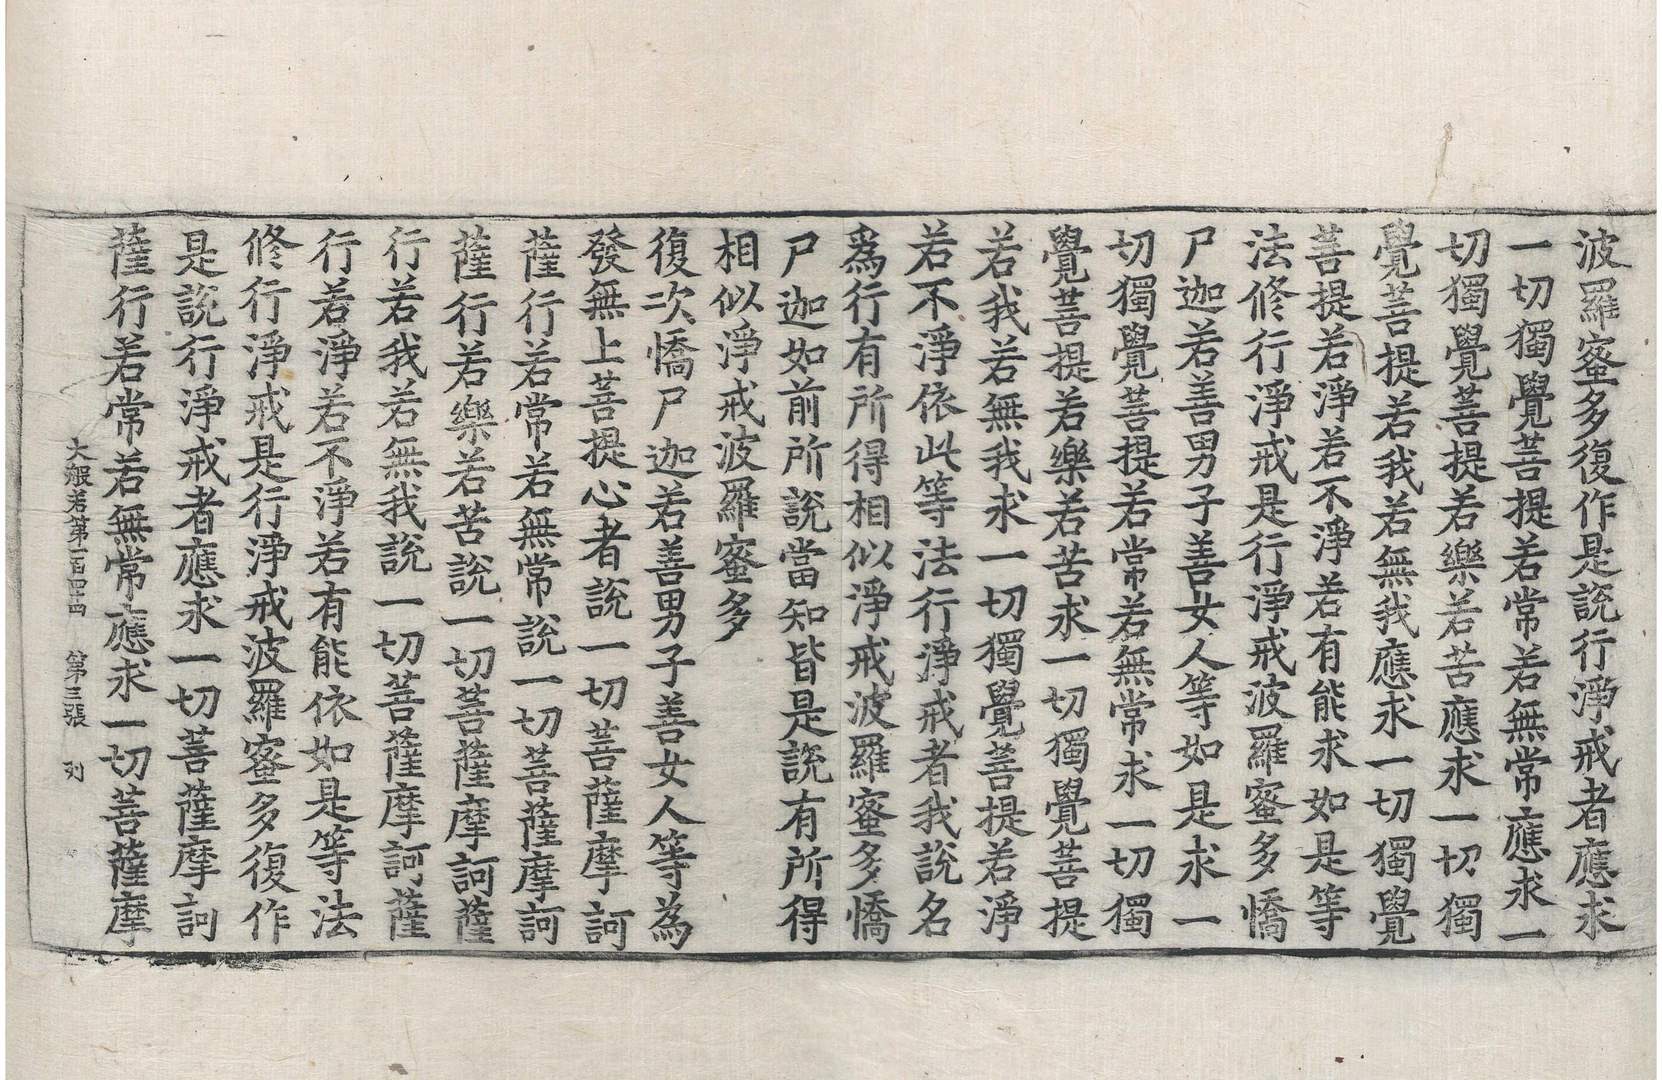 波羅蜜多復作是說行淨戒者應求
一切獨覺菩提若常若無常應求一
切獨覺菩提若樂若苦應求一切獨
覺菩提若我若無我應求一切獨覺
菩提若淨若不淨若有能求如是等
法修行淨戒是行淨戒波羅蜜多憍
尸迦若善男子善女人等如是求一
切獨覺菩提若常若無常求一切獨
覺菩提若樂若苦求一切獨覺菩提
若我若無我求一切獨覺菩提若淨
若不淨依此等法行淨戒者我說名
爲行有所得相似淨戒波羅蜜多憍
尸迦如前所說當知皆是說有所得
相似淨戒波羅蜜多
復次憍尸迦若善男子善女人等為
發無上菩提心者說一切菩薩摩訶
薩行若常若無常說一切菩薩摩訶
薩行若樂若苦說一切菩薩摩訶薩
行若我若無我說一切菩薩摩訶薩
行若淨若不淨若有能依如是等法
修行淨戒是行淨戒波羅蜜多復作
是說行淨戒者應求一切菩薩摩訶
薩行若常若無常應求一切菩薩摩
大般若第一百四十四 第三張 列